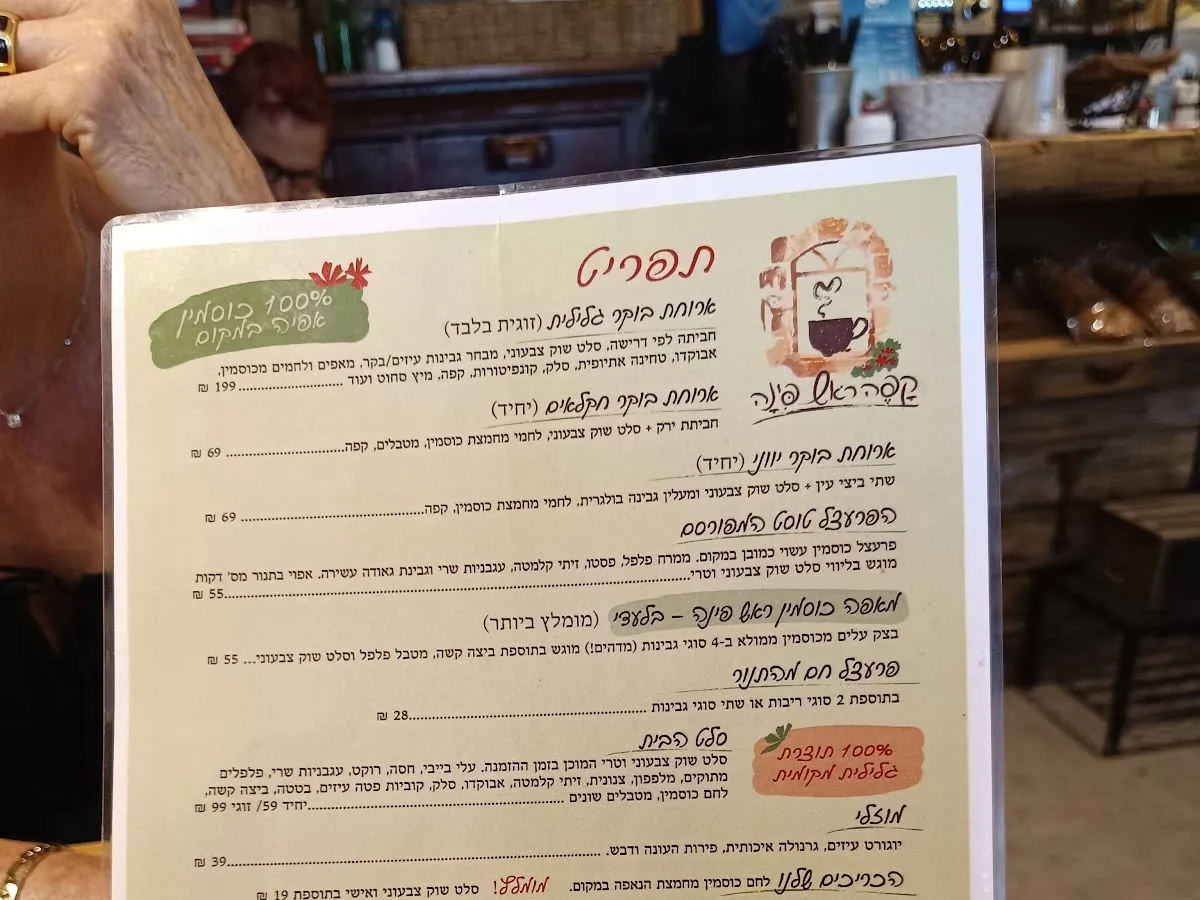 תפריט
100% כוסמין
אפיה במקום
קָפֶה ראש פִּינָה
ארוחת בוקר גלילית (זוגית בלבד)
חביתה לפי דרישה, סלט שוק צבעוני, מבחר גבינות עיזים/בקר, מאפים ולחמים מכוסמין,
אבוקדו, טחינה אתיופית, סלק, קונפיטורות, קפה, מיץ סחוט ועוד ........................ 199 ₪
ארוחת בוקר חקלאים (יחיד)
חביתת ירק + סלט שוק צבעוני, לחמי מחמצת כוסמין, מטבלים, קפה........................... 69 ₪
ארוחת בוקר יווני (יחיד)
שתי ביצי עין + סלט שוק צבעוני ומעלין גבינה בולגרית, לחמי מחמצת כוסמין, קפה........................................... 69 ₪
הפרעצל טוסט המפורסם
פרעצל כוסמין עשוי כמובן במקום. ממרח פלפל, פסטו, זיתי קלמטה, עגבניות שרי וגבינת גאודה עשירה. אפוי בתנור מס' דקות
מוגש בליווי סלט שוק צבעוני וטרי...........................................................................................55 ₪
מאפה כוסמין ראש פינה – בלעדי (מומלץ ביותר)
בצק עלים מכוסמין ממולא ב-4 סוגי גבינות (מדהים!) מוגש בתוספת ביצה קשה, מטבל פלפל וסלט שוק צבעוני... 55 ₪
פרעצל חם מהתנור
בתוספת 2 סוגי ריבות או שתי סוגי גבינות ..............................................28 ₪
100% תוצרת
גלילית מקומית
סלט הבית
סלט שוק צבעוני וטרי המוכן בזמן ההזמנה. עלי בייבי, חסה, רוקט, עגבניות שרי, פלפלים
מתוקים, מלפפון, צנונית, זיתי קלמטה, אבוקדו, סלק, קוביות פטה עיזים, בטטה, ביצה קשה,
לחם כוסמין, מטבלים שונים ..................................................יחיד 59/ זוגי 99 ₪
מוזלי
יוגורט עיזים, גרנולה איכותית, פירות העונה ודבש. .........................................................................39 ₪
הכריכים שלנו לחם כוסמין מחמצת הנאפה במקום. מומלץ! סלט שוק צבעוני ואישי בתוספת 19 ₪